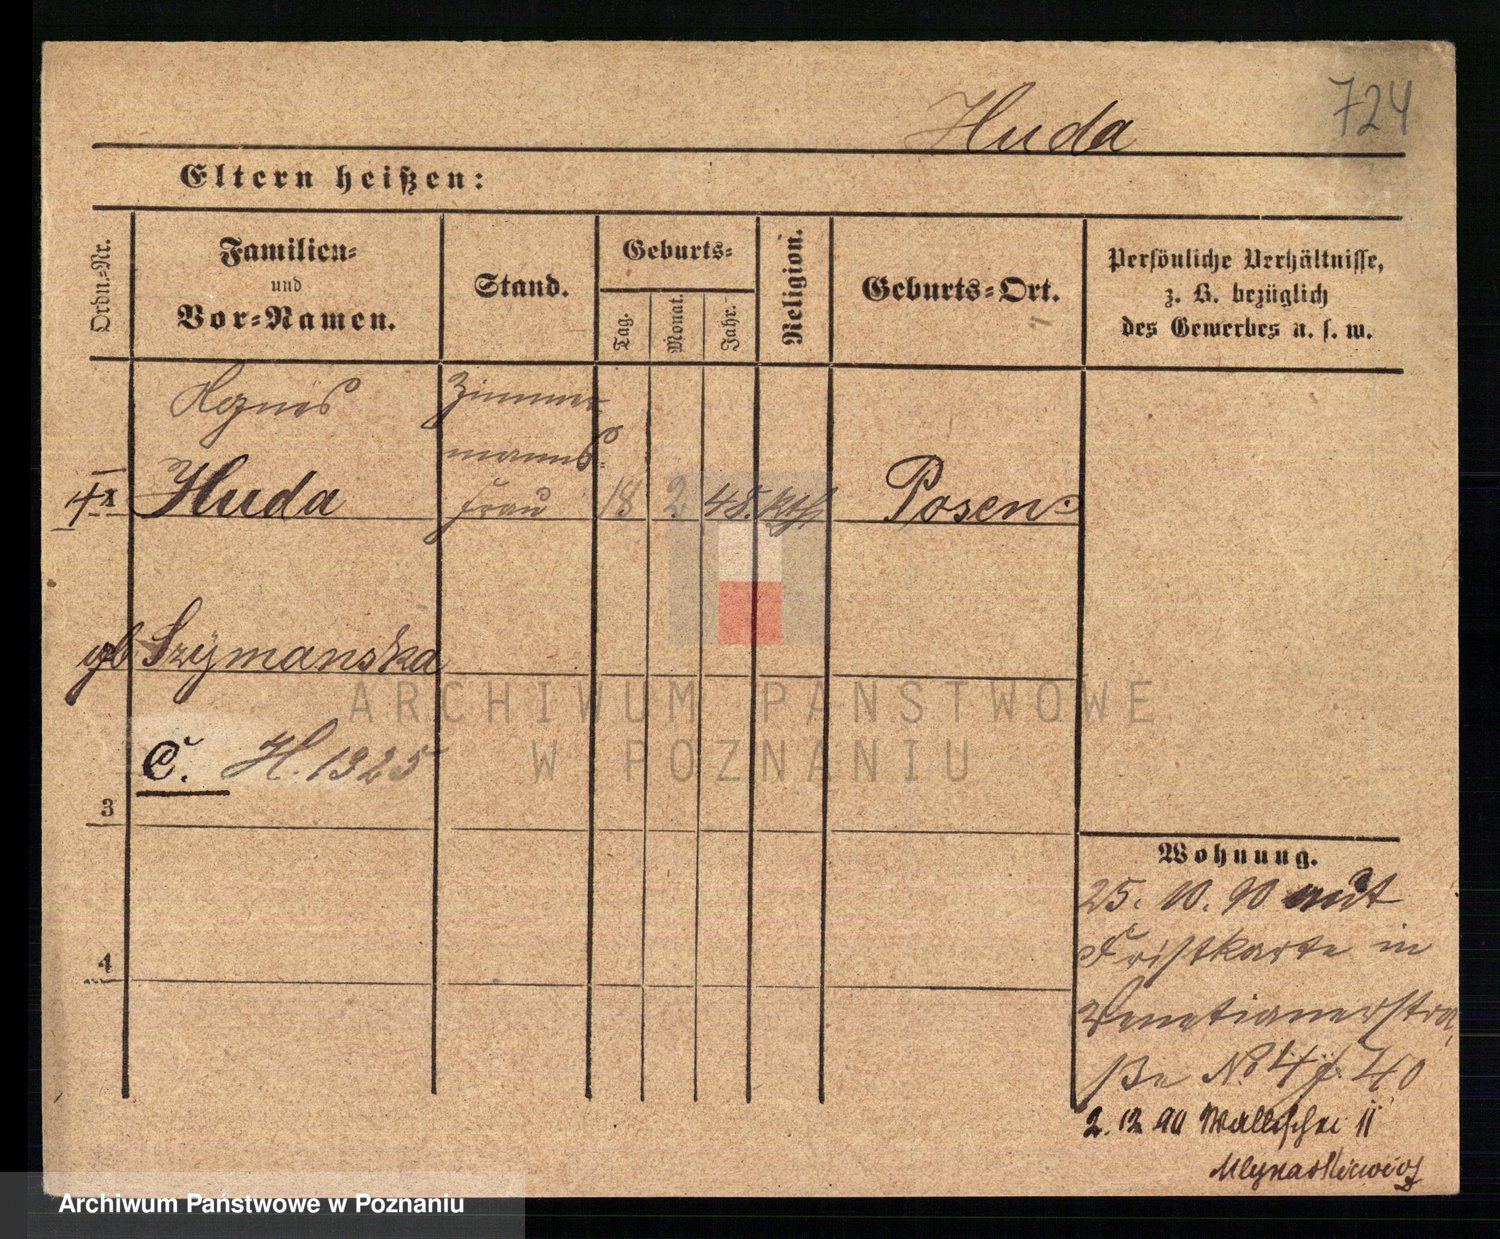 724
Huda
Eltern heißen:
Ordn.-Nr.
Familien-
und
Vor-Namen.
Stand.
Geburts-
Tag.
Monat.
Jahr.
Religion.
Geburts-Ort.
Persönliche Verhältnisse,
z. B. bezüglich
des Gewerbes u. s. w.
Agnes
Zimmer
manns-
Huda
frau
18 2 48. kth.
Posen
gb Szymanska
C. H. 1325
3
4
Wohnung.
25. 10. 90 aut
Fristkarte in
Venetianerstra
ße No 4 J. 40
2. 12 90 Wallischei 11
Mlynarkiewicz
ARCHIWUM PAŃSTWOWE
W POZNANIU
Archiwum Państwowe w Poznaniu